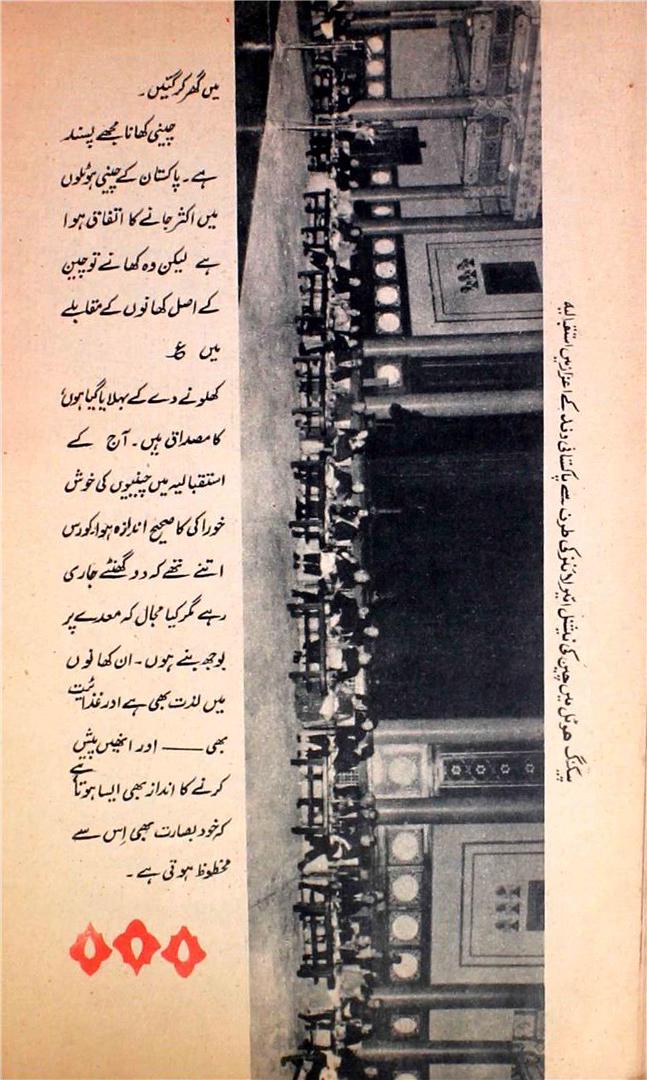 میں گھر کر گئیں۔
چینی کھانا مجھے پسند
ہے۔ پاکستان کے چینی ہوٹلوں
میں اکثر جانے کا اتفاق ہوا
ہے لیکن وہ کھانے تو چین
کے اصل کھانوں کے مقابلے
میں ؏
کھلونے دے کے بہلایا گیا ہوں
کا مصداق ہیں۔ آج کے
استقبالیہ میں چینیوں کی خوش
خوراکی کا صحیح اندازہ ہوا، کورس
اتنے تھے کہ دو گھنٹے جاری
رہے مگر کیا مجال کہ معدے پر
بوجھ بنے ہوں۔ ان کھانوں
میں لذت بھی ہے اور غذائیت
بھی —— اور انھیں پیش
کرنے کا انداز بھی ایسا ہوتا ہے
کہ خود بصارت بھی اِس سے
محظوظ ہوتی ہے۔
پیکنگ ھوٹل میں چین کی نیشنل ائیر لائنز کی طرف سے پاکستانی وفد کے اعزاز میں استقبالیہ